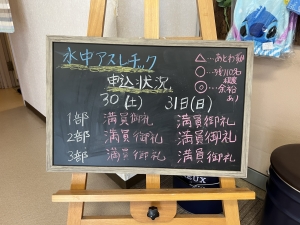 水中アスレチック
申込状況
△…あとわずか
○…残り10名程度
◎…余裕あり
30(土) 31日(日)
1部 満員御礼 満員御礼
2部 満員御礼 満員御礼
3部 満員御礼 満員御礼